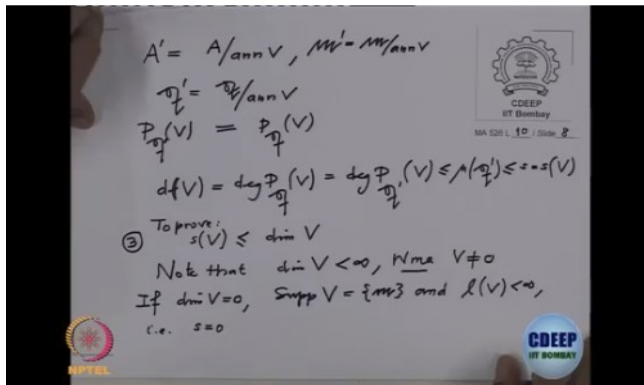 A' = A/ann V , m' = m/ann V
q' = q/ann V
P_q'(V) = P_q(V)
d(V) = deg P_q(V) = deg P_q'(V) ≤ μ(q') ≤ s = s(V)
③ To prove: s(V) ≤ dim V
Note that dim V < ∞, Wma V ≠ 0
If dim V = 0, Supp V = {m} and l(V) < ∞,
i.e. s = 0
CDEEP
IIT Bombay
MA 526 L 10 / Slide 8
NPTEL
CDEEP
IIT BOMBAY